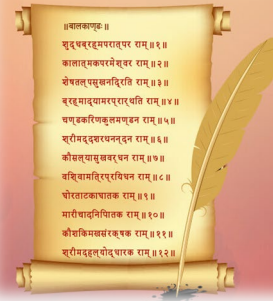 ॥बालकाण्डः॥
शुद्धब्रह्मपरात्पर राम्॥१॥
कालात्मकपरमेश्वर राम्॥२॥
शेषतल्पसुखनिद्रित राम्॥३॥
ब्रह्माद्यामरप्रार्थित राम्॥४॥
चण्डकिरणकुलमण्डन राम्॥५॥
श्रीमद्दशरथनन्दन राम्॥६॥
कौसल्यासुखवर्धन राम्॥७॥
विश्वामित्रप्रियधन राम्॥८॥
घोरताटकाघातक राम्॥९॥
मारीचादिनिपातक राम्॥१०॥
कौशिकमखसंरक्षक राम्॥११॥
श्रीमदहल्योद्धारक राम्॥१२॥